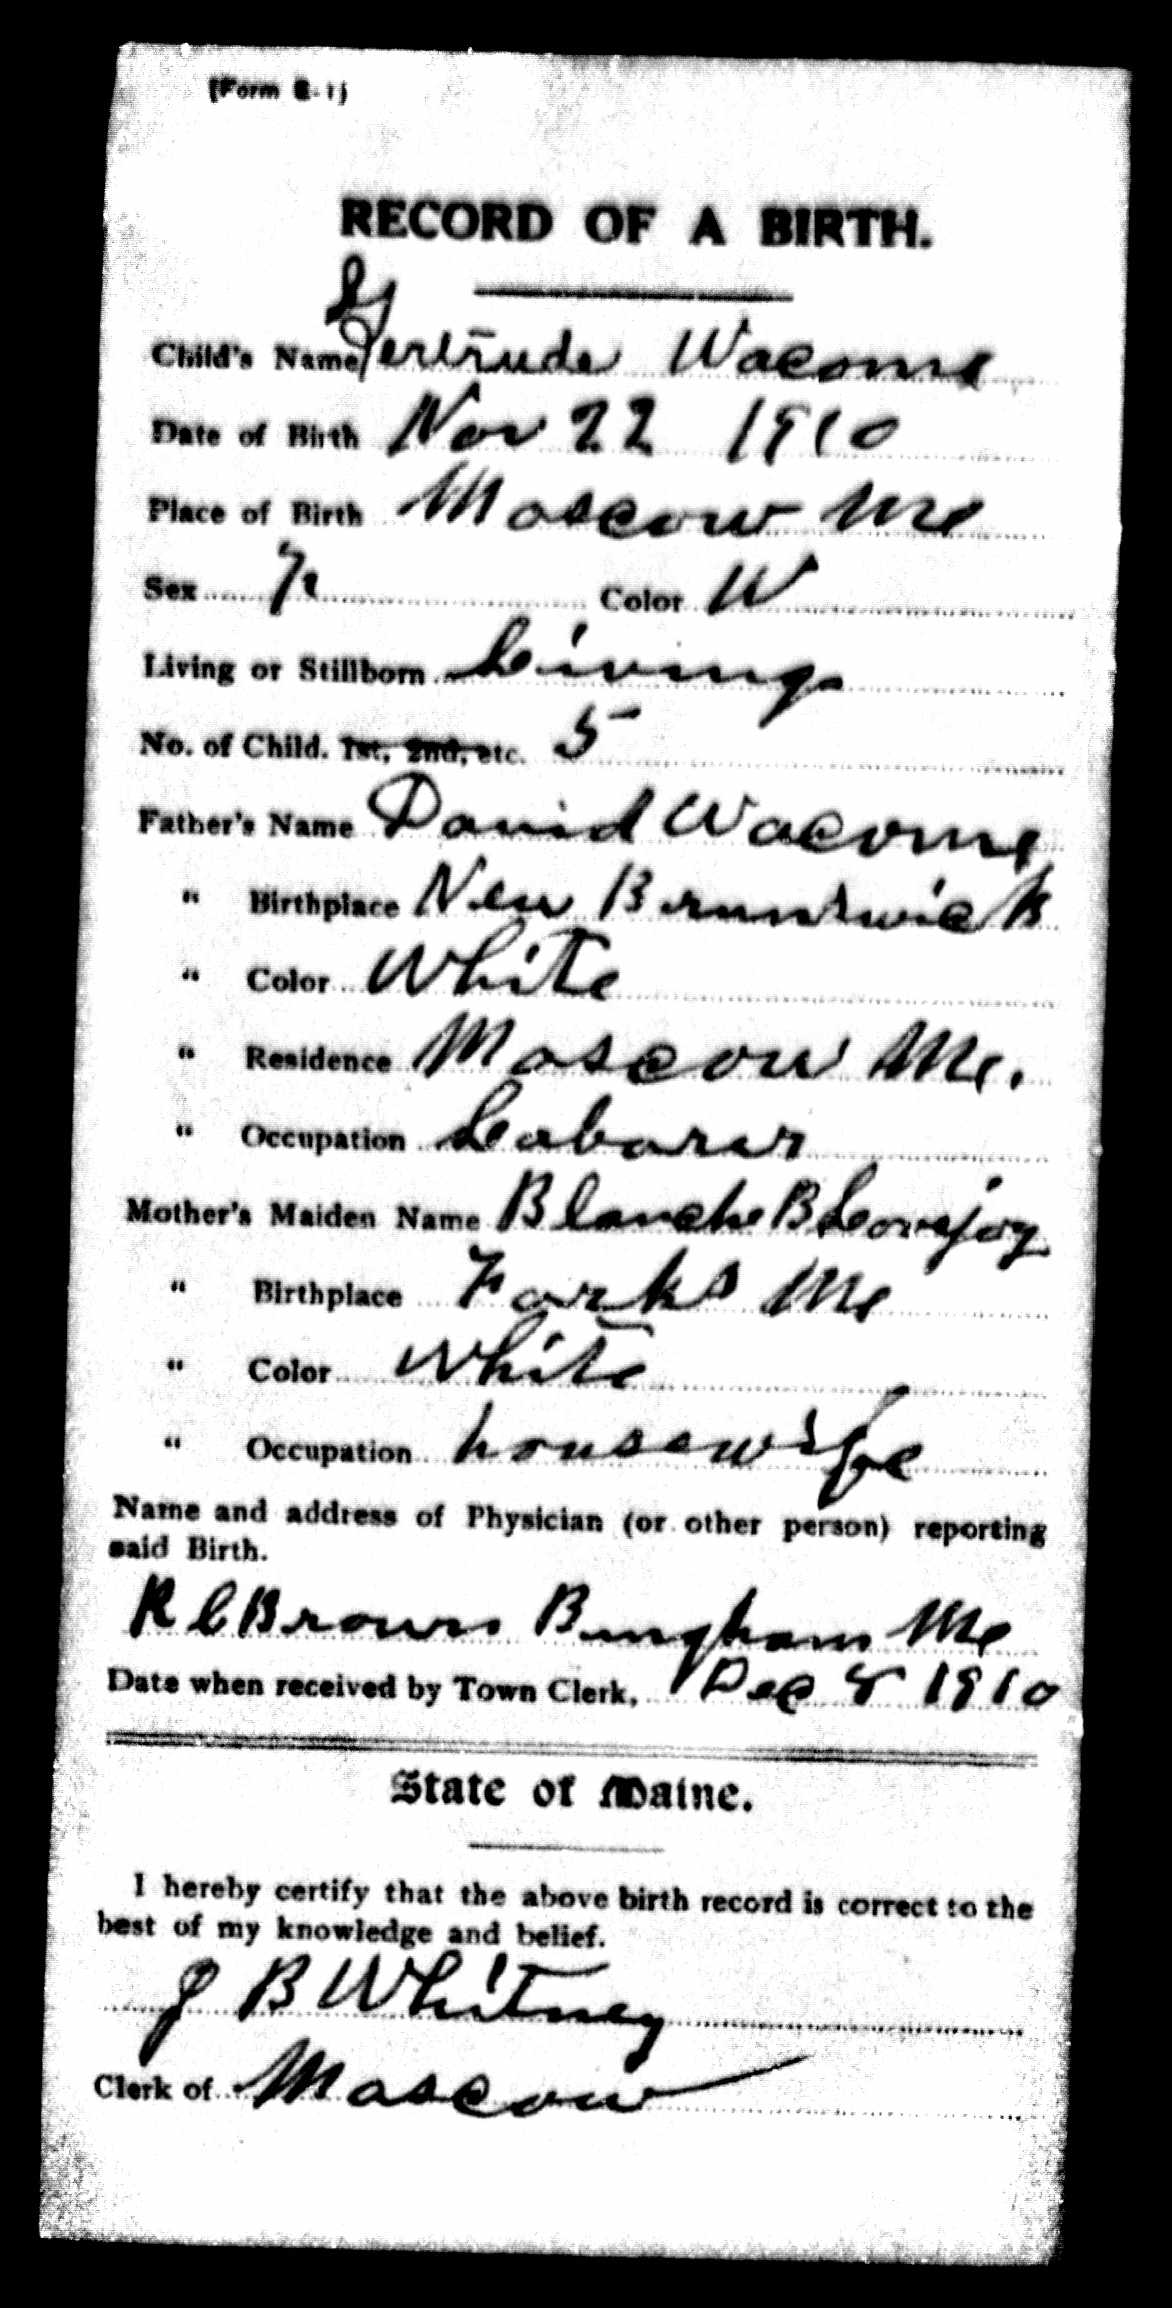 [Form B-1]
RECORD OF A BIRTH.
Child's Name Gertrude Wacome
Date of Birth Nov 22 1910
Place of Birth Moscow Me
Sex F Color W
Living or Stillborn Living
No. of Child. 1st, 2nd, etc. 5
Father's Name David Wacome
" Birthplace New Brunswick
" Color White
" Residence Moscow Me.
" Occupation Laborer
Mother's Maiden Name Blanche B Lovejoy
" Birthplace Forks Me
" Color White
" Occupation housewife
Name and address of Physician (or other person) reporting
said Birth.
R C Brown Bingham Me
Date when received by Town Clerk, Dec 8 1910
State of Maine.
I hereby certify that the above birth record is correct to the
best of my knowledge and belief.
J B Whitney
Clerk of Moscow